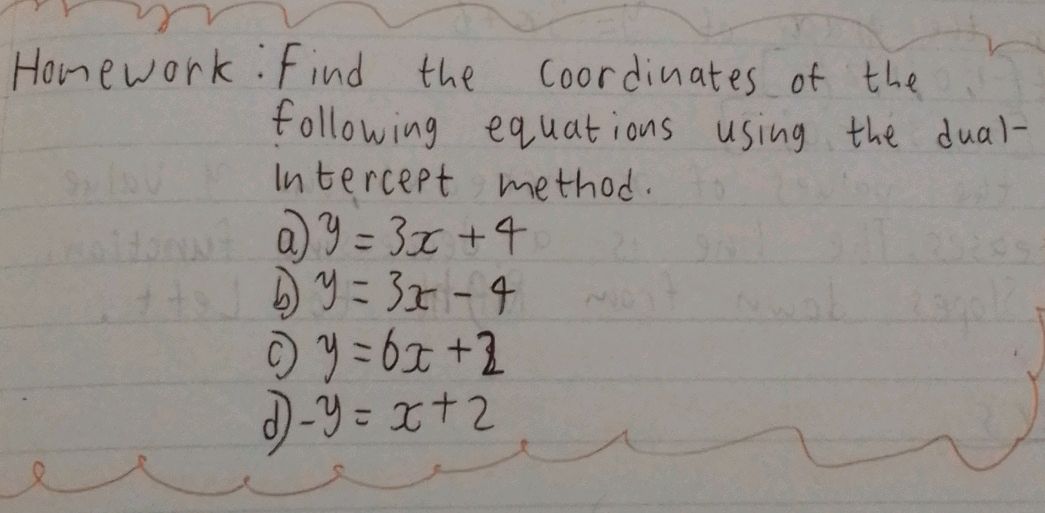 Homework: Find the coordinates of the
following equations using the dual-
intercept method.
a) y = 3x + 4
b) y = 3x - 4
c) y = 6x + 2
d) -y = x + 2